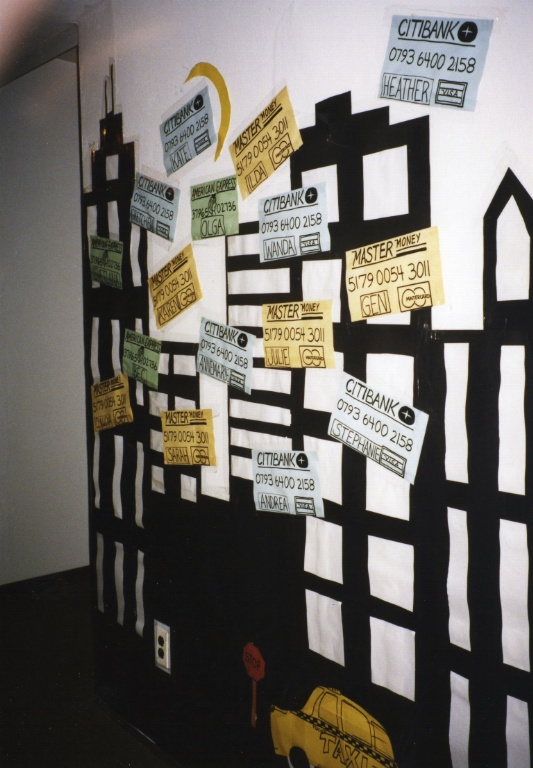 CITIBANK
0793 6400 2158
HEATHER VISA
CITIBANK
0793 6400 2158
KATE
MASTER MONEY
5179 0054 3011
ILDA
CITIBANK
0793 6400 2158
AMERICAN EXPRESS
OLGA
CITIBANK
0793 6400 2158
WANDA VISA
MASTER MONEY
5179 0054 3011
GEN MASTERCARD
AMERICAN EXPRESS
MASTER MONEY
5179 0054 3011
KAREN
MASTER MONEY
5179 0054 3011
JULIE
CITIBANK
0793 6400 2158
ANNEMARIE
AMERICAN EXPRESS
CITIBANK
0793 6400 2158
STEPHANIE
MASTER MONEY
5179 0054 3011
MASTER MONEY
5179 0054 3011
SARAH
CITIBANK
0793 6400 2158
ANDREA
STOP
TAXI